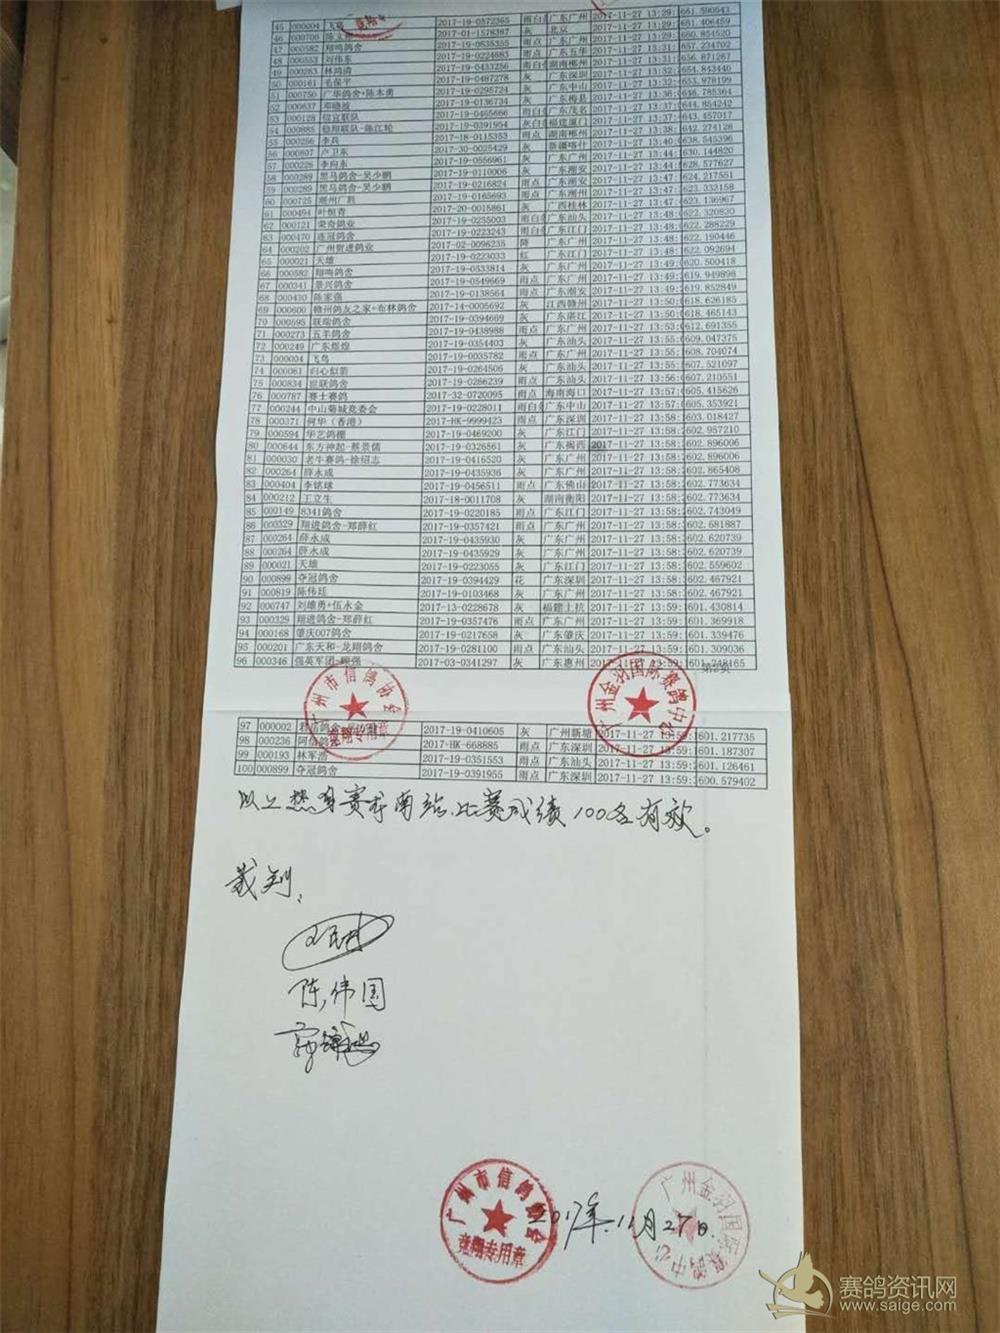 45 000004 飞鸟 2017-19-0372365 雨白条 广东广州 2017-11-27 13:29: 661.590643
46 000706 2017-01-1578387 灰 北京 2017-11-27 13:29: 661.406459
47 000582 翔鸣鸽舍 2017-19-0635355 雨点 广东广州 2017-11-27 13:29: 660.854520
48 000553 刘伟东 2017-19-0224683 雨点 广东五华 2017-11-27 13:31: 657.234702
49 000283 林鸿清 2017-19-0433256 雨白条 湖南郴州 2017-11-27 13:31: 656.871267
50 000161 毛保平 2017-19-0487278 灰 广东深圳 2017-11-27 13:32: 654.843440
51 000750 广华鸽舍+陈本勇 2017-19-0295724 灰 广东中山 2017-11-27 13:32: 653.978199
52 000637 邓晓波 2017-19-0136734 灰 广东梅县 2017-11-27 13:36: 646.785364
53 000128 信宜联队 2017-19-0465666 雨白条 广东茂名 2017-11-27 13:37: 644.854242
54 000885 稳翔联队-陈江轮 2017-19-0391954 灰白条 福建厦门 2017-11-27 13:37: 643.457017
55 000256 李兵 2017-18-0115353 雨点 湖南郴州 2017-11-27 13:38: 642.274128
56 000807 卢卫东 2017-30-0025429 灰 新疆喀什 2017-11-27 13:40: 638.545396
57 000226 李向东 2017-19-0556961 灰 广东广州 2017-11-27 13:44: 630.144820
58 000289 黑马鸽舍-吴少鹏 2017-19-0110006 灰 广东潮安 2017-11-27 13:44: 628.577627
59 000289 黑马鸽舍-吴少鹏 2017-19-0216824 雨点 广东潮安 2017-11-27 13:47: 624.217551
60 000725 潮州广胜 2017-19-0165693 雨点 广东潮州 2017-11-27 13:47: 623.333158
61 000494 叶恒青 2017-20-0015861 灰 广西桂林 2017-11-27 13:47: 623.136967
62 000121 荣奇鸽业 2017-19-0255003 雨白条 广东汕头 2017-11-27 13:48: 622.320830
63 000470 连冠鸽舍 2017-19-0223243 雨白条 广东江门 2017-11-27 13:48: 622.288229
64 000202 广州贺进鸽业 2017-02-0096235 绛 广东广州 2017-11-27 13:48: 622.190446
65 000021 天雄 2017-19-0223033 红 广东江门 2017-11-27 13:48: 622.092694
66 000582 翔鸣鸽舍 2017-19-0533814 灰 广东广州 2017-11-27 13:49: 620.500418
67 000341 景兴鸽舍 2017-19-0549669 雨点 广东广州 2017-11-27 13:49: 619.949898
68 000430 陈家强 2017-19-0138564 雨点 广东潮安 2017-11-27 13:49: 619.852849
69 000600 赣州鸽友之家+布林鸽舍 2017-14-0005692 灰 江西赣州 2017-11-27 13:50: 618.626185
70 000595 联瑞鸽舍 2017-19-0394669 灰 广东湛江 2017-11-27 13:50: 618.465143
71 000273 五羊鸽舍 2017-19-0438988 雨点 广东广州 2017-11-27 13:53: 612.691355
72 000249 广东煜煌 2017-19-0354403 灰 广东汕头 2017-11-27 13:55: 609.047375
73 000004 飞鸟 2017-19-0035782 雨点 广东广州 2017-11-27 13:55: 608.704074
74 000061 归心似箭 2017-19-0264506 灰 广东汕头 2017-11-27 13:55: 607.521097
75 000834 世联鸽舍 2017-19-0286239 雨点 广东汕头 2017-11-27 13:56: 607.210551
76 000787 赛士赛鸽 2017-32-0720095 雨点 海南海口 2017-11-27 13:57: 605.415626
77 000244 中山菊城竞委会 2017-19-0228011 雨白条 广东中山 2017-11-27 13:57: 605.353921
78 000371 何华（香港） 2017-HK-9999423 雨点 广东深圳 2017-11-27 13:58: 603.018427
79 000594 华艺鸽棚 2017-19-0469200 灰 广东江门 2017-11-27 13:58: 602.957210
80 000644 东方神起-蔡景儒 2017-19-0326561 灰 广东揭西 2017-11-27 13:58: 602.896006
81 000030 老牛赛鸽-徐绍志 2017-19-0416520 灰 广东广州 2017-11-27 13:58: 602.896006
82 000264 薛永成 2017-19-0435936 灰 广东广州 2017-11-27 13:58: 602.865408
83 000404 李铭球 2017-19-0456511 雨点 广东佛山 2017-11-27 13:58: 602.773634
84 000212 王立生 2017-18-0011708 灰 湖南衡阳 2017-11-27 13:58: 602.773634
85 000149 8341鸽舍 2017-19-0220185 雨点 广东江门 2017-11-27 13:58: 602.743049
86 000329 翔进鸽舍-郑薛红 2017-19-0357421 雨点 广东广州 2017-11-27 13:58: 602.681887
87 000264 薛永成 2017-19-0435930 灰 广东广州 2017-11-27 13:58: 602.620739
88 000264 薛永成 2017-19-0435929 灰 广东广州 2017-11-27 13:58: 602.620739
89 000021 天雄 2017-19-0223055 灰 广东江门 2017-11-27 13:58: 602.559602
90 000899 夺冠鸽舍 2017-19-0394429 花 广东深圳 2017-11-27 13:58: 602.467921
91 000819 陈伟廷 2017-19-0103468 灰 广东广州 2017-11-27 13:58: 602.467921
92 000747 刘雄勇+伍永金 2017-13-0228678 灰 福建上杭 2017-11-27 13:59: 601.430814
93 000329 翔进鸽舍-郑薛红 2017-19-0357476 雨点 广东广州 2017-11-27 13:59: 601.369918
94 000168 肇庆007鸽舍 2017-19-0217658 灰 广东肇庆 2017-11-27 13:59: 601.339476
95 000201 广东天和-龙翔鸽舍 2017-19-0281100 雨点 广东汕头 2017-11-27 13:59: 601.309036
96 000346 强英军团-顾强 2017-03-0341297 灰 广东惠州 2017-11-27 13:59: 601.248165
第2页
广州市信鸽协会
竞翔专用章
广州金羽国际赛鸽中心
97 000002 2017-19-0410605 灰 广州新塘 2017-11-27 13:59: 601.217735
98 000236 阿信鸽舍 2017-HK-668885 雨点 广东深圳 2017-11-27 13:59: 601.187307
99 000193 林军浩 2017-19-0351553 雨点 广东汕头 2017-11-27 13:59: 601.126461
100 000899 夺冠鸽舍 2017-19-0391955 雨点 广东深圳 2017-11-27 13:59: 600.579402
以上热身赛南站比赛成绩100名有效。
裁判：
陈伟国
广州市信鸽协会
竞翔专用章
2017年11月27日.
广州金羽国际赛鸽中心
赛鸽资讯网
www.saige.com